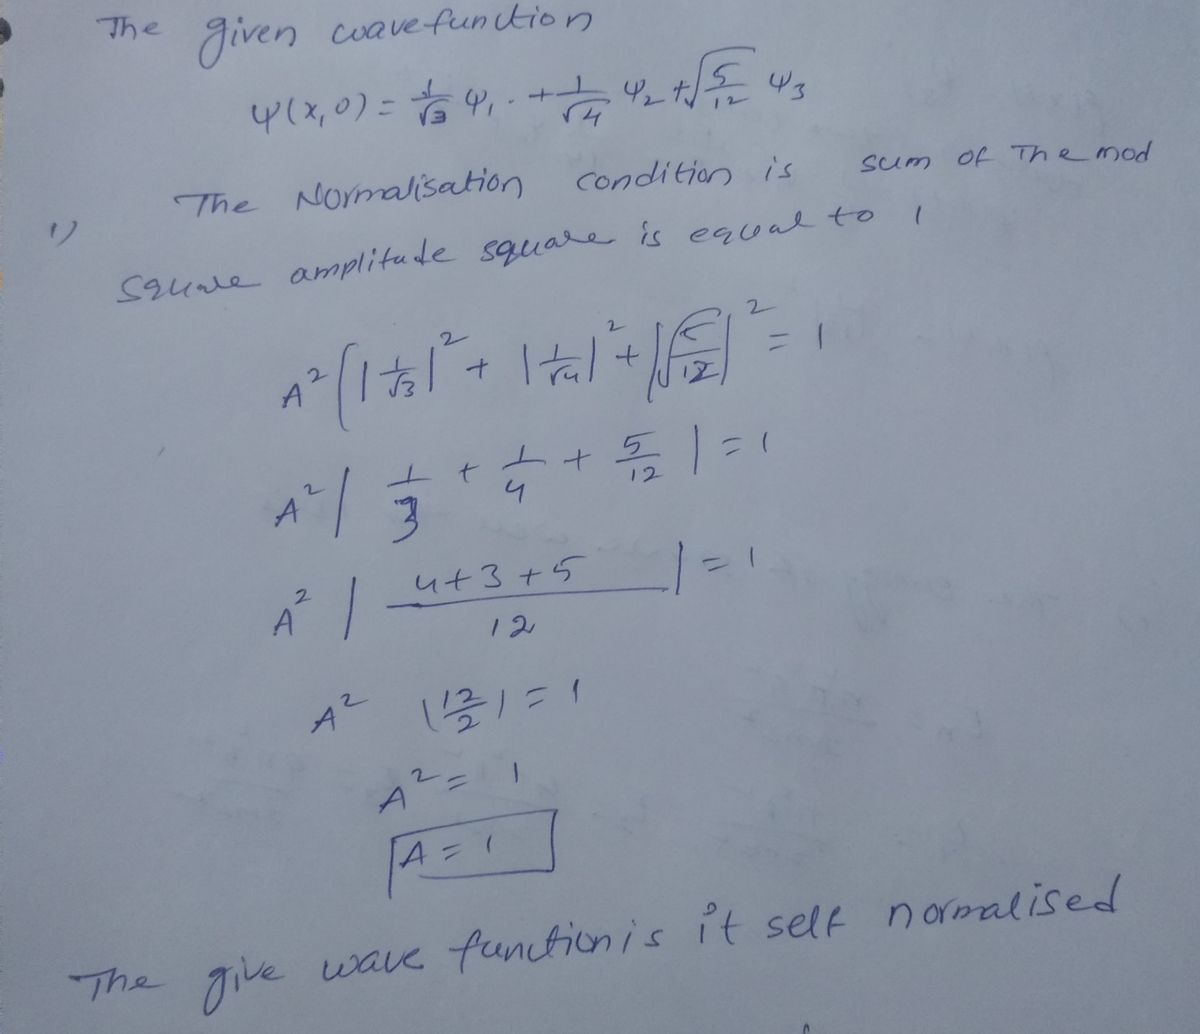 The given wavefunction
ψ(x,0) = 1/√3 ψ₁ . + 1/√4 ψ₂ + √5/12 ψ₃
1) The Normalisation condition is sum of The mod
square amplitude square is equal to 1
A² ( |1/√3|² + |1/√4|² + |√5/12|² = 1
A² | 1/3 + 1/4 + 5/12 | = 1
A² | 4+3+5/12 | = 1
A² (12/2) = 1
A² = 1
A = 1
The give wave function is it self normalised